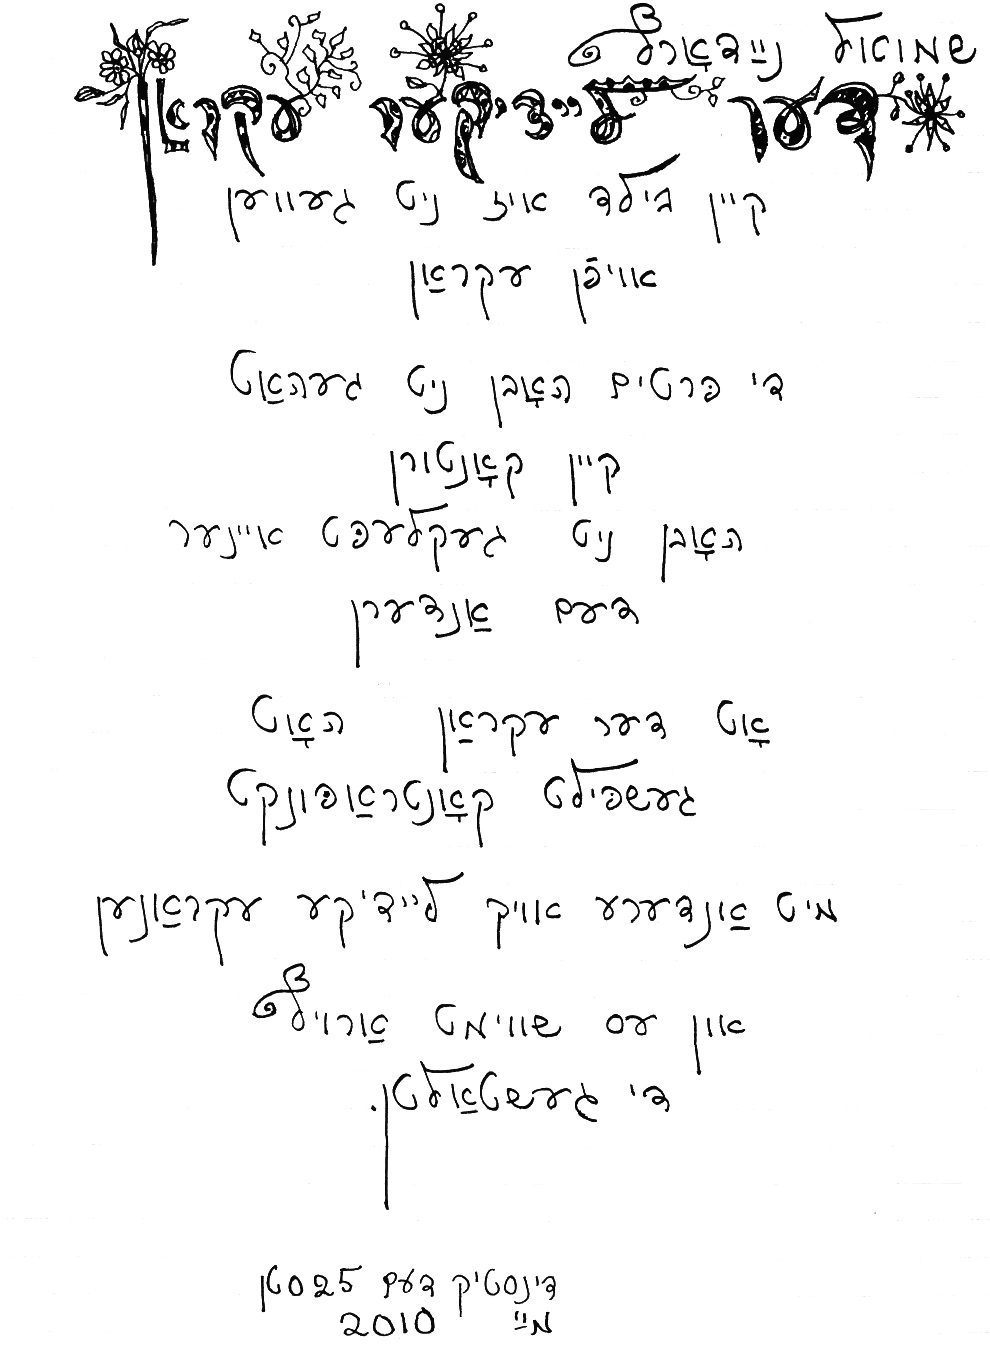 שמואל נײַדאָרף
דער לײדיקער עקראַן
קײן בילד איז ניט געװען
אױפֿן עקראַן
די פּרטים האָבן ניט געהאַט
קײן קאָנטורן
האָבן ניט געקלעפּט אײנער
דעם אַנדערן
אָט דער עקראַן האָט
געשפּילט קאָנטראַפּונקט
מיט אַנדערע אױך לײדיקע עקראַנען
און עס שװימט אַרױף
די געשטאַלטן.
דינסטיק דעם 25סטן
מײַ 2010